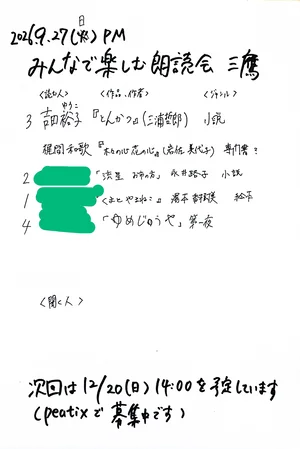 2026.9.27(日) PM
みんなで楽しむ朗読会 三鷹
<読む人> <作品、作者> <ジャンル>
3 吉田裕子 ゆうこ 『とんかつ』(三浦哲郎) 小説
梶間和歌 『木々の心 花の心』(岩佐美代子) 専門書?
2 永井路子 小説
1 くまとやまねこ 湯本香樹実 絵本
4 「ゆめじゅうや」第一夜
<聞く人>
次回は 12/20(日) 14:00を予定しています
(peatixで募集中です)